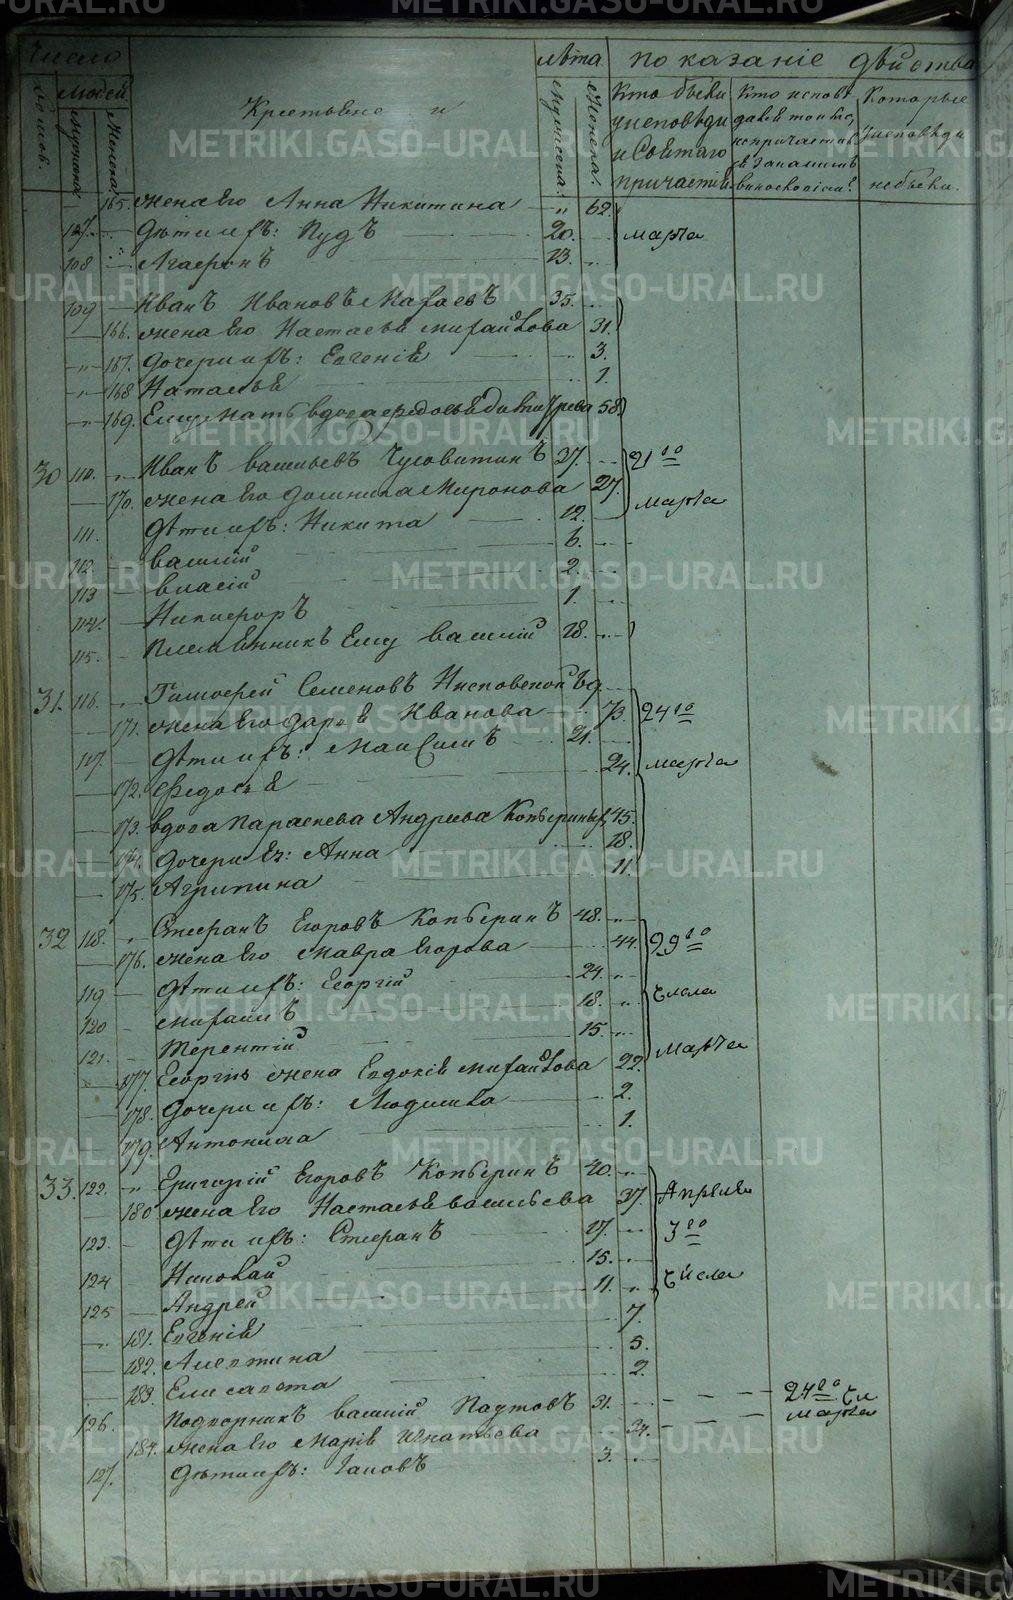 Число лѣта показаніе дѣйства
домов. Людей Крестьяне и Мужска. Женска. Кто были Кто испов Которые
Мужска Женска. у исповѣди дався токмо, у исповѣди
и Святаго не причастив
причастія не были.
165. жена Его Анна Никитина " 62
107. Дѣти ихъ: Пудъ 20. марта
108 Агафонъ 13.
109 Иванъ Ивановъ 35.
166. жена Его Настасья Михайлова 31.
167. Дочери ихъ: Евгенія 3.
168 Наталья 1.
169. Ему мать вдова Федосья 58
30 110. Иванъ Васильевъ Чусовитинъ 37. 21го
170. жена Его Домника Миронова 27. марта
111. Дѣти ихъ: Никита 12.
112. Василій 6.
113 Власій 2.
114. Никифоръ 1.
115. Племянникъ Ему Василій 18.
31. 116. Тимофей Семеновъ
171. жена Его Дарья Иванова 73. 24го
117. Дѣти ихъ: Максимъ 21. марта
172. Федосья 24.
173. вдова Параскева Андреева Копыриныхъ 45.
174. Дочери Ея: Анна 18.
175. Агрипина 11.
32 118. Стефанъ Егоровъ Копыринъ 48.
176. жена Его Мавра Егорова 44.
119 Дѣти ихъ: Георгій 24. числа
120 Михаилъ 18.
121. Терентій 15. Марта
177. Георгія жена Евдокія Михайлова 22.
178. Дочери ихъ: Людмила 2.
179. Антонина 1.
33. 122. Григорій Егоровъ Копыринъ 40.
180 жена Его Настасья Васильева 37. Апреля
123. Дѣти ихъ: Стефанъ 17. 3го
124 Николай 15. числа
125 Андрей 11.
181. Евгенія 7.
182. Алевтина 5.
183. Елисавета 2.
126. Подворникъ Василій Паутовъ 31. 24го чи.
184. жена Его Марія Игнатьева 34. марта
127. Дѣти ихъ: Іаковъ 3.
METRIKI.GASO-URAL.RU